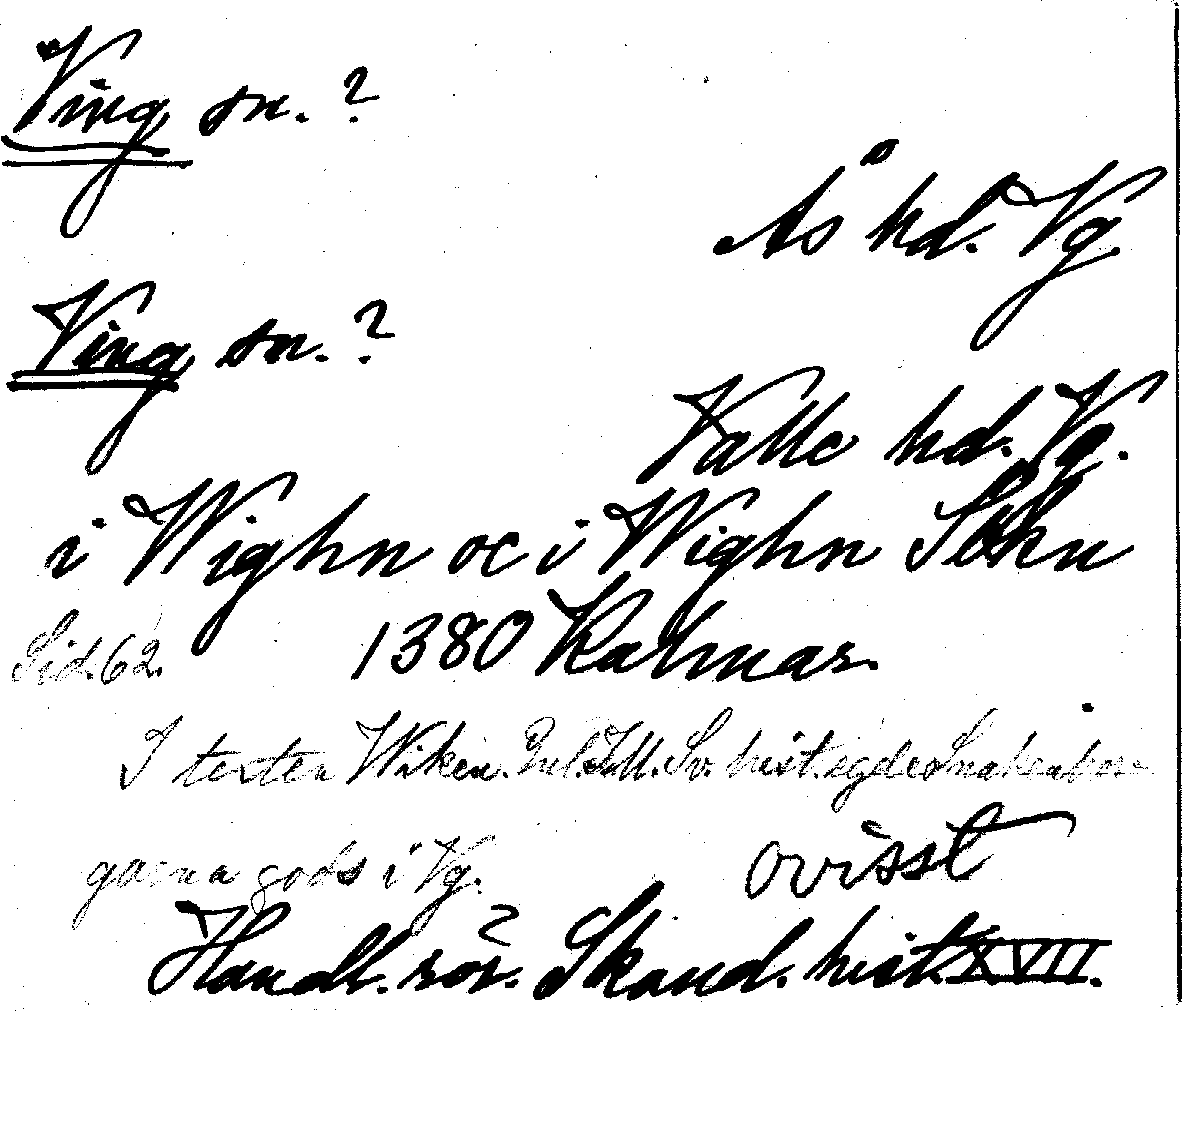 Ving sn. ?
Ås hd. Vg.
Ving sn. ?
Valle hd. Vg.
i Wighn oc i Wighn Sokn
Sid. 62. 1380 Kalmar.
I texten Wiken. Enl. Ill. Sv. hist. ägde Snakenbor-
garna gods i Vg. ovisst
Handl. rör. Skand. hist. XVII.